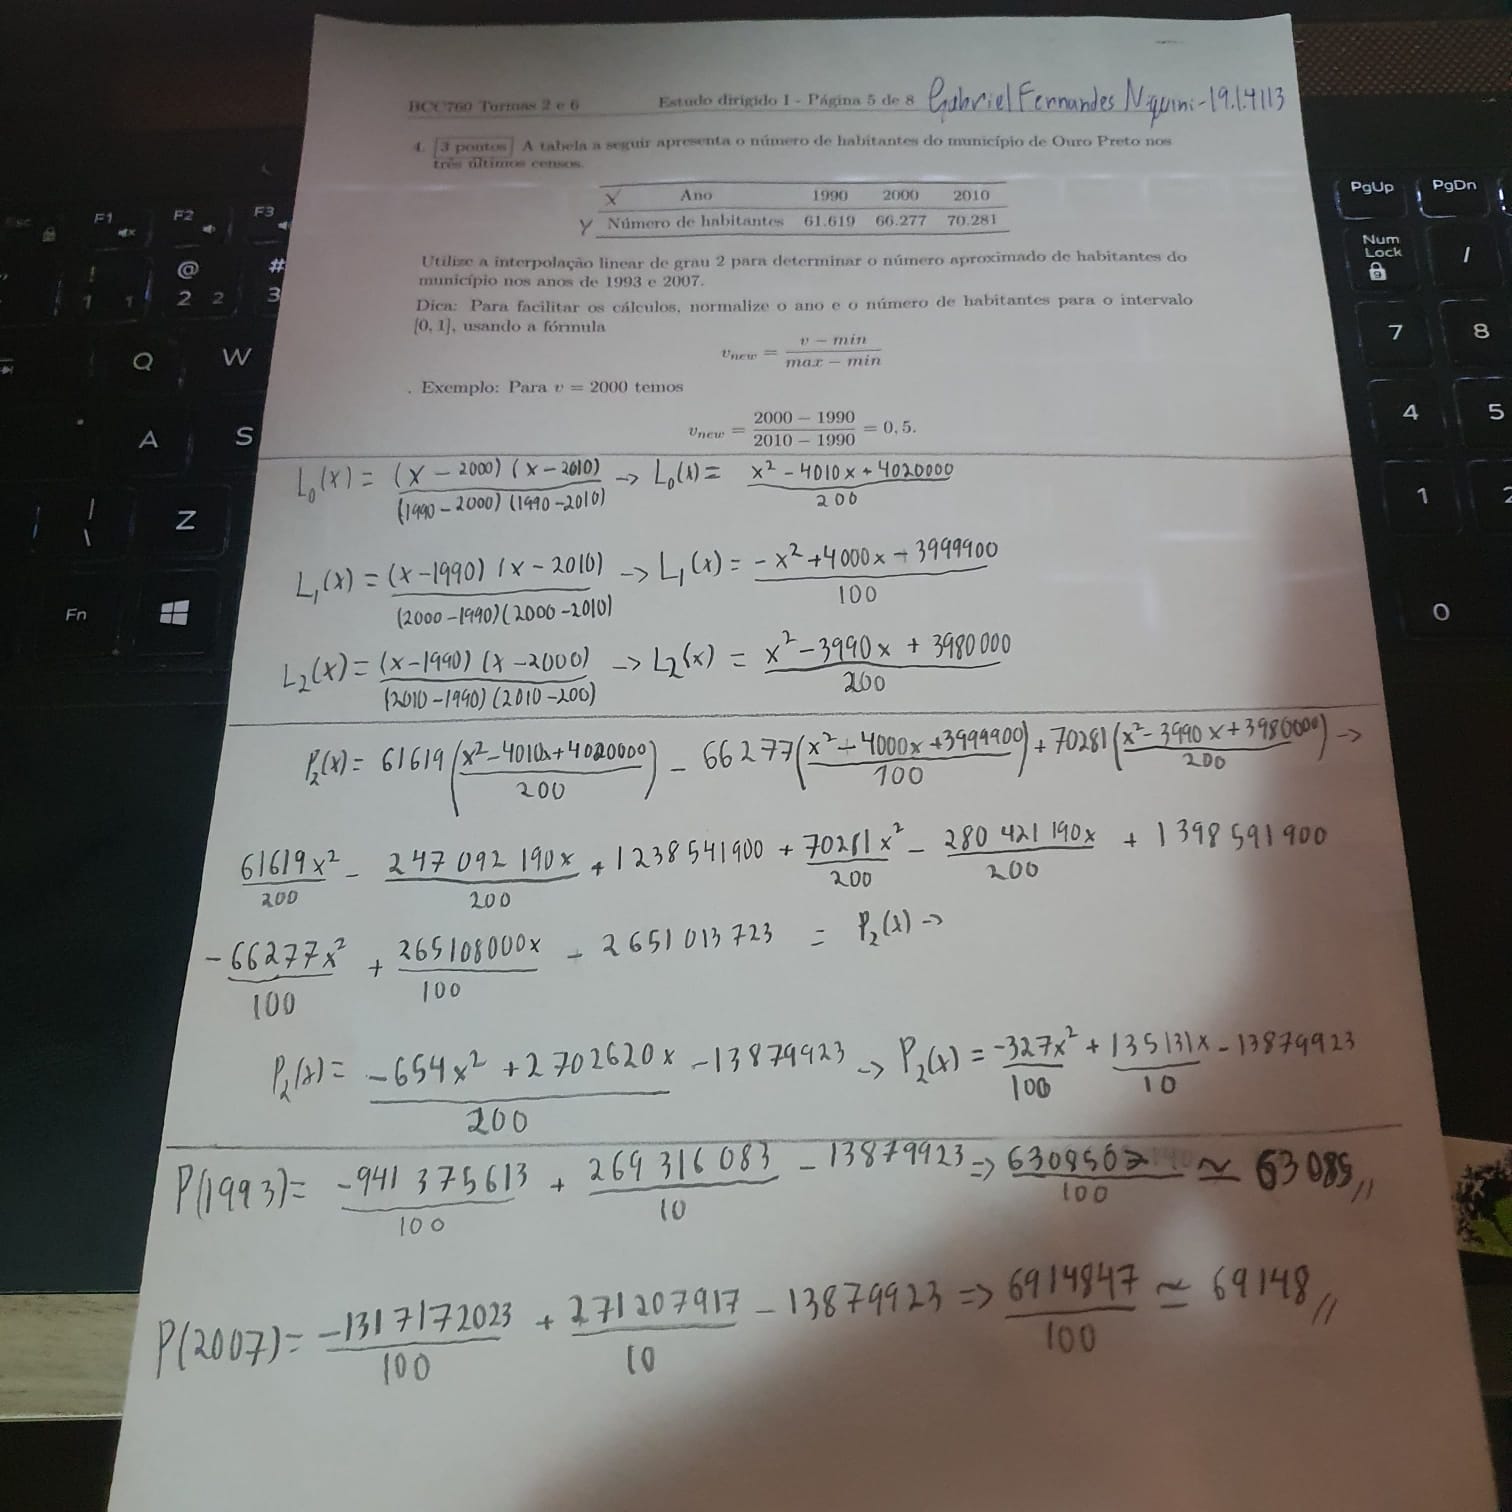 BCC760 Turmas 2 e 6 Estudo dirigido I - Página 5 de 8 Gabriel Fernandes Niquini - 19.1.4113
4. [3 pontos] A tabela a seguir apresenta o número de habitantes do município de Ouro Preto nos
três últimos censos.
X Ano 1990 2000 2010
Y Número de habitantes 61.619 66.277 70.281
Utilize a interpolação linear de grau 2 para determinar o número aproximado de habitantes do
município nos anos de 1993 e 2007.
Dica: Para facilitar os cálculos, normalize o ano e o número de habitantes para o intervalo
[0, 1], usando a fórmula
v_new = (v − min)/(max − min)
. Exemplo: Para v = 2000 temos
v_new = (2000 − 1990)/(2010 − 1990) = 0, 5.
L₀(x) = (x - 2000)(x - 2010)/(1990 - 2000)(1990 - 2010) → L₀(x) = x² - 4010x + 4020000/200
L₁(x) = (x - 1990)(x - 2010)/(2000 - 1990)(2000 - 2010) → L₁(x) = -x² + 4000x - 3999900/100
L₂(x) = (x - 1990)(x - 2000)/(2010 - 1990)(2010 - 200) → L₂(x) = x² - 3990x + 3980000/200
P₂(x) = 61619(x² - 4010x + 4020000/200) - 66277(x² - 4000x + 3999900/100) + 70281(x² - 3990x + 3980000/200) →
61619x²/200 - 247092190x/200 + 1238541900 + 70281x²/200 - 280421190x/200 + 1398591900
- 66277x²/100 + 265108000x/100 - 2651013723 = P₂(x) →
P₂(x) = -654x² + 2702620x/200 - 13879923 → P₂(x) = -327x²/100 + 135131x/10 - 13879923
P(1993) = -941375613/100 + 269316083/10 - 13879923 ⇒ 6308502/100 ≃ 63085 //
P(2007) = -1317172023/100 + 271207917/10 - 13879923 ⇒ 6914847/100 ≃ 69148 //
Esc
F1
F2
F3
@
2 2
#
3
1 1
Q
W
A
S
Z
|
\
Fn
PgUp
PgDn
Num
Lock
9
/
7
8
4
5
1
2
0